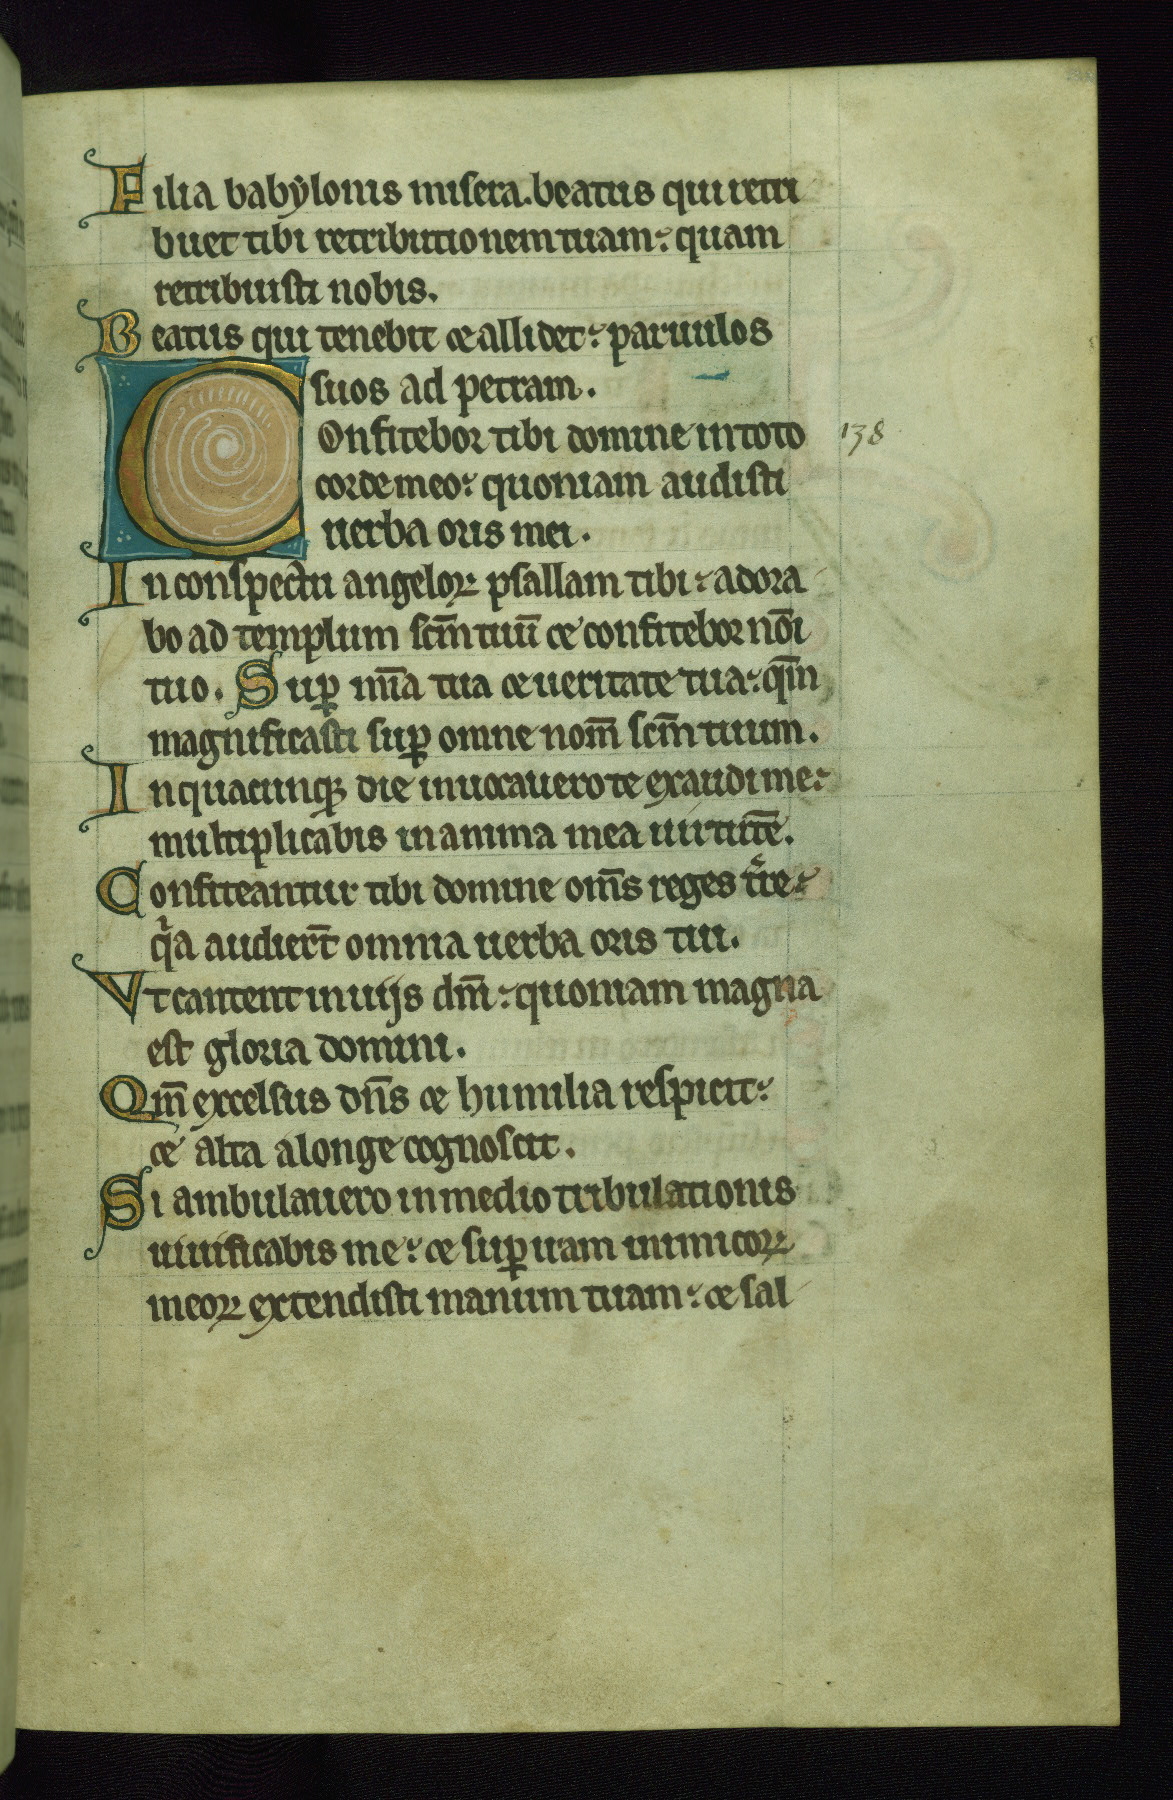 Filia babẏlonis misera.beatus qui retri
buet tibi retributionem tuam: quam
retribuisti nobis.
Beatus qui tenebit ⁊ allidet: paruulos
suos ad petram.
Confitebor tibi domine in toto 138
corde meo: quoniam audisti
uerba oris mei.
In conspectu angeloꝝ psallam tibi: adora
bo ad templum scm̄ tuū ⁊ confitebor nōi
tuo. Suꝑ mīa tua ⁊ ueritate tua: qm̄
magnificasti suꝑ omne nom̄ scm̄ tuum.
In quacunqꝫ die inuocauero te exaudi me:
multiplicabis in anima mea uirtutē.
Confiteantur tibi domine om̄s reges t̉re:
qͥa audier̄t omnia uerba oris tui.
Vt cantent in uijs dn̄i: quoniam magna
est gloria domini.
Qm̄ excelsus dn̄s ⁊ humilia respicit:
⁊ alta a longe cognoscit.
Si ambulauero in medio tribulationis
uiuificabis me: ⁊ suꝑ iram inimicoꝝ
meoꝝ extendisti manum tuam: ⁊ sal